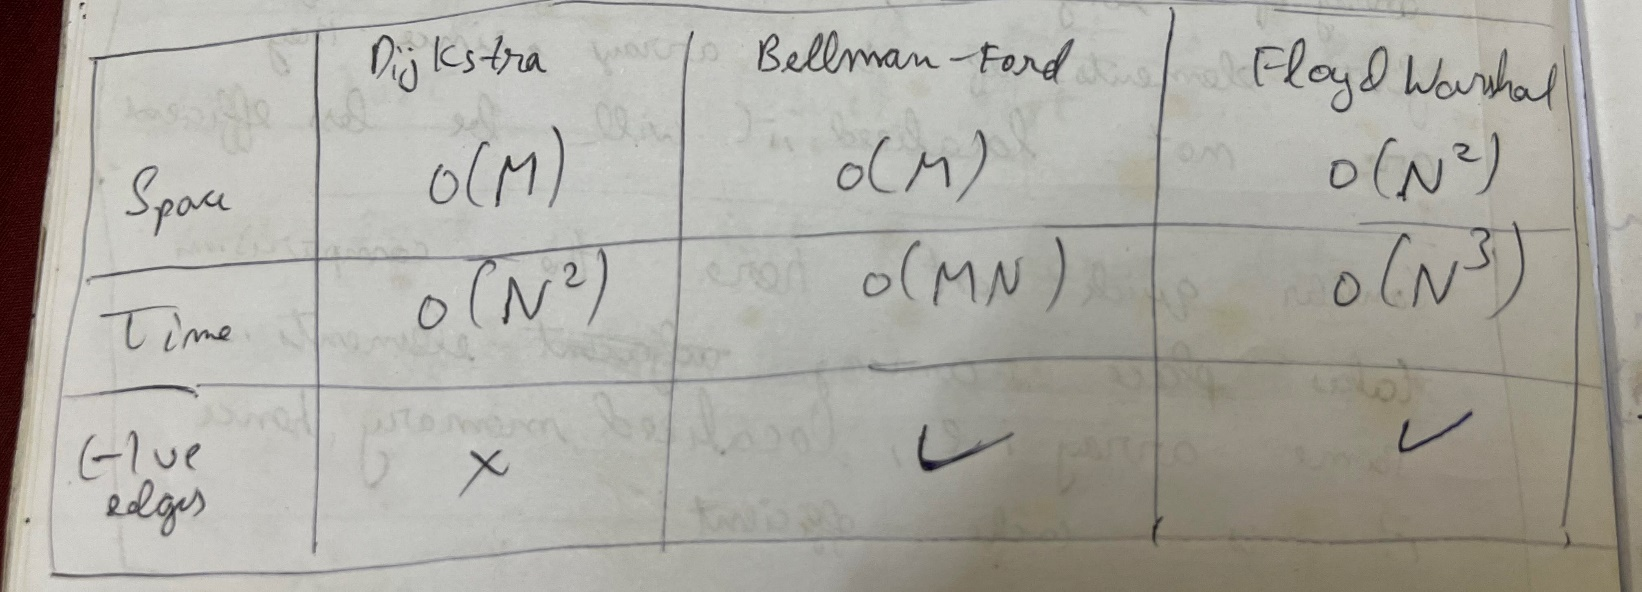 Dijkstra Bellman-Ford Floyd Warshal
Space O(M) O(M) O(N²)
Time O(N²) O(MN) O(N³)
(-)ve ✗ ✓ ✓
edges